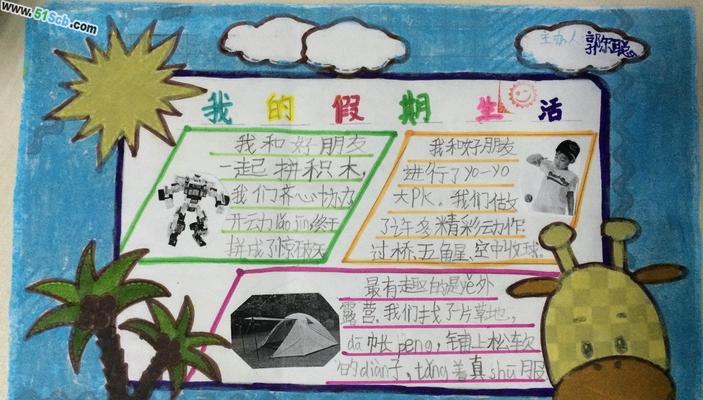 www.51Scb.com
主办人 郭尔聪
我的假期生活
我和好朋友
一起拼积木,
我们齐心协力
开动lǎo jīn终于
拼成了惊破天
我和好朋友
进行了yo-yo
大PK。我们做
了许多精彩动作:
过桥、五角星、空中收球。
最有趣的是yě外
露营。我们找了片草地,
dā帐peng,铺上松软
的diàn子,tǎng着真shū服